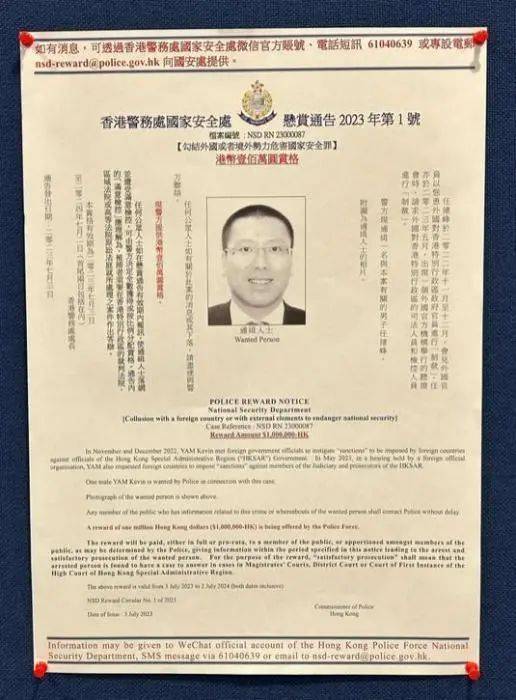 如有消息，可透過香港警務處國家安全處微信官方賬號、電話短訊 61040639 或專設電郵
nsd-reward@police.gov.hk 向國安處提供。
香港警務處國家安全處 懸賞通告 2023 年第 1 號
檔案編號：NSD RN 23000087
【勾結外國或者境外勢力危害國家安全罪】
港幣壹佰萬圓賞格
任建峰於二〇二二年十一月至十二月，會見外國官
員以慫恿外國對香港特別行政區政府官員進行「制裁」；任
亦於二〇二三年五月，出席一個外國官方機構舉行的聽證
會時，請求外國對香港特別行政區的司法人員和檢控人員
進行「制裁」。
警方現通緝一名與本案有關的男子任建峰。
附圖為通緝人士的相片。
任何公眾人士如有關於此案的消息或其下落，請盡速與警
方聯絡。
現警方懸賞港幣壹佰萬圓賞格。
任何公眾人士如在懸賞通告有效期內報訊，使通緝人士落網
並遭受滿意檢控，可由警方決定全數獲得或按比例分配賞格。通告內
的「滿意檢控」應理解為，被捕者需要在香港特別行政區的裁判法院、
區域法院或高等法院原訟法庭就所處理之案件作出答辯。
本賞格有效期為二〇二三年七月三日
至二〇二四年七月二日（首尾兩日包括在內）。
香港警務處處長
通告發出日期：二〇二三年七月三日
通緝人士
Wanted Person
POLICE REWARD NOTICE
National Security Department
[Collusion with a foreign country or with external elements to endanger national security]
Case Reference : NSD RN 23000087
Reward Amount $1,000,000-HK
In November and December 2022, YAM Kevin met foreign government officials to instigate "sanctions" to be imposed by foreign countries
against officials of the Hong Kong Special Administrative Region ("HKSAR") Government. In May 2023, in a hearing held by a foreign official
organisation, YAM also requested foreign countries to impose "sanctions" against members of the Judiciary and prosecutors of the HKSAR.
One male YAM Kevin is wanted by Police in connection with this case.
Photograph of the wanted person is shown above.
Any member of the public who has information related to this crime or whereabouts of the wanted person shall contact Police without delay.
A reward of one million Hong Kong dollars ($1,000,000-HK) is being offered by the Police Force.
The reward will be paid, either in full or pro-rata, to a member of the public, or apportioned amongst members of the
public, as may be determined by the Police, giving information within the period specified in this notice leading to the arrest and
satisfactory prosecution of the wanted person. For the purpose of the reward, "satisfactory prosecution" shall mean that the
arrested person is found to have a case to answer in cases in Magistrates' Courts, District Court or Court of First Instance of the
High Court of Hong Kong Special Administrative Region.
The above reward is valid from 3 July 2023 to 2 July 2024 (both dates inclusive)
NSD Reward Circular No. 1 of 2023
Date of Issue : 3 July 2023
Commissioner of Police
Hong Kong
Information may be given to WeChat official account of the Hong Kong Police Force National
Security Department, SMS message via 61040639 or email to nsd-reward@police.gov.hk.